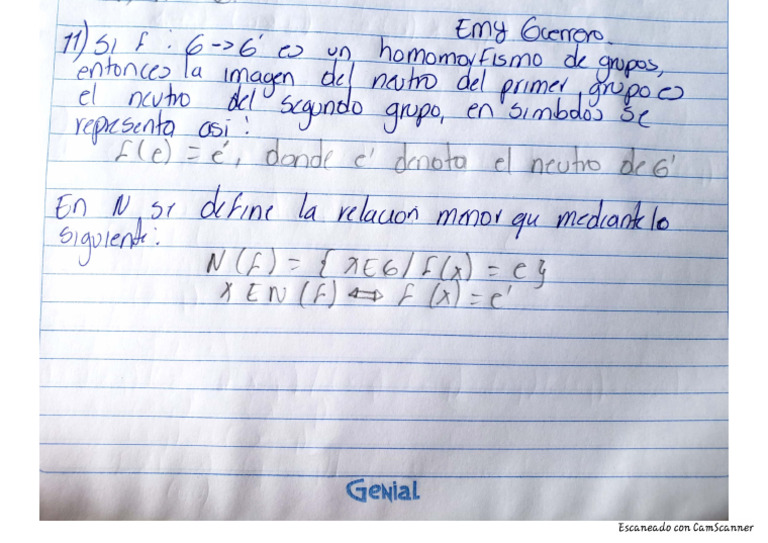 Emy Guerrero.
11) Si f : G -> G' es un homomorfismo de grupos,
entonces la imagen del neutro del primer grupo es
el neutro del segundo grupo, en simbolos se
representa asi:
f(e) = e', donde e' denota el neutro de G'
En N, si define la relacion menor qu mediante lo
siguiente:
N(f) = { x E G / f(x) = e }
x E N (f) <=> f (x) = e'
GENIAL
Escaneado con CamScanner